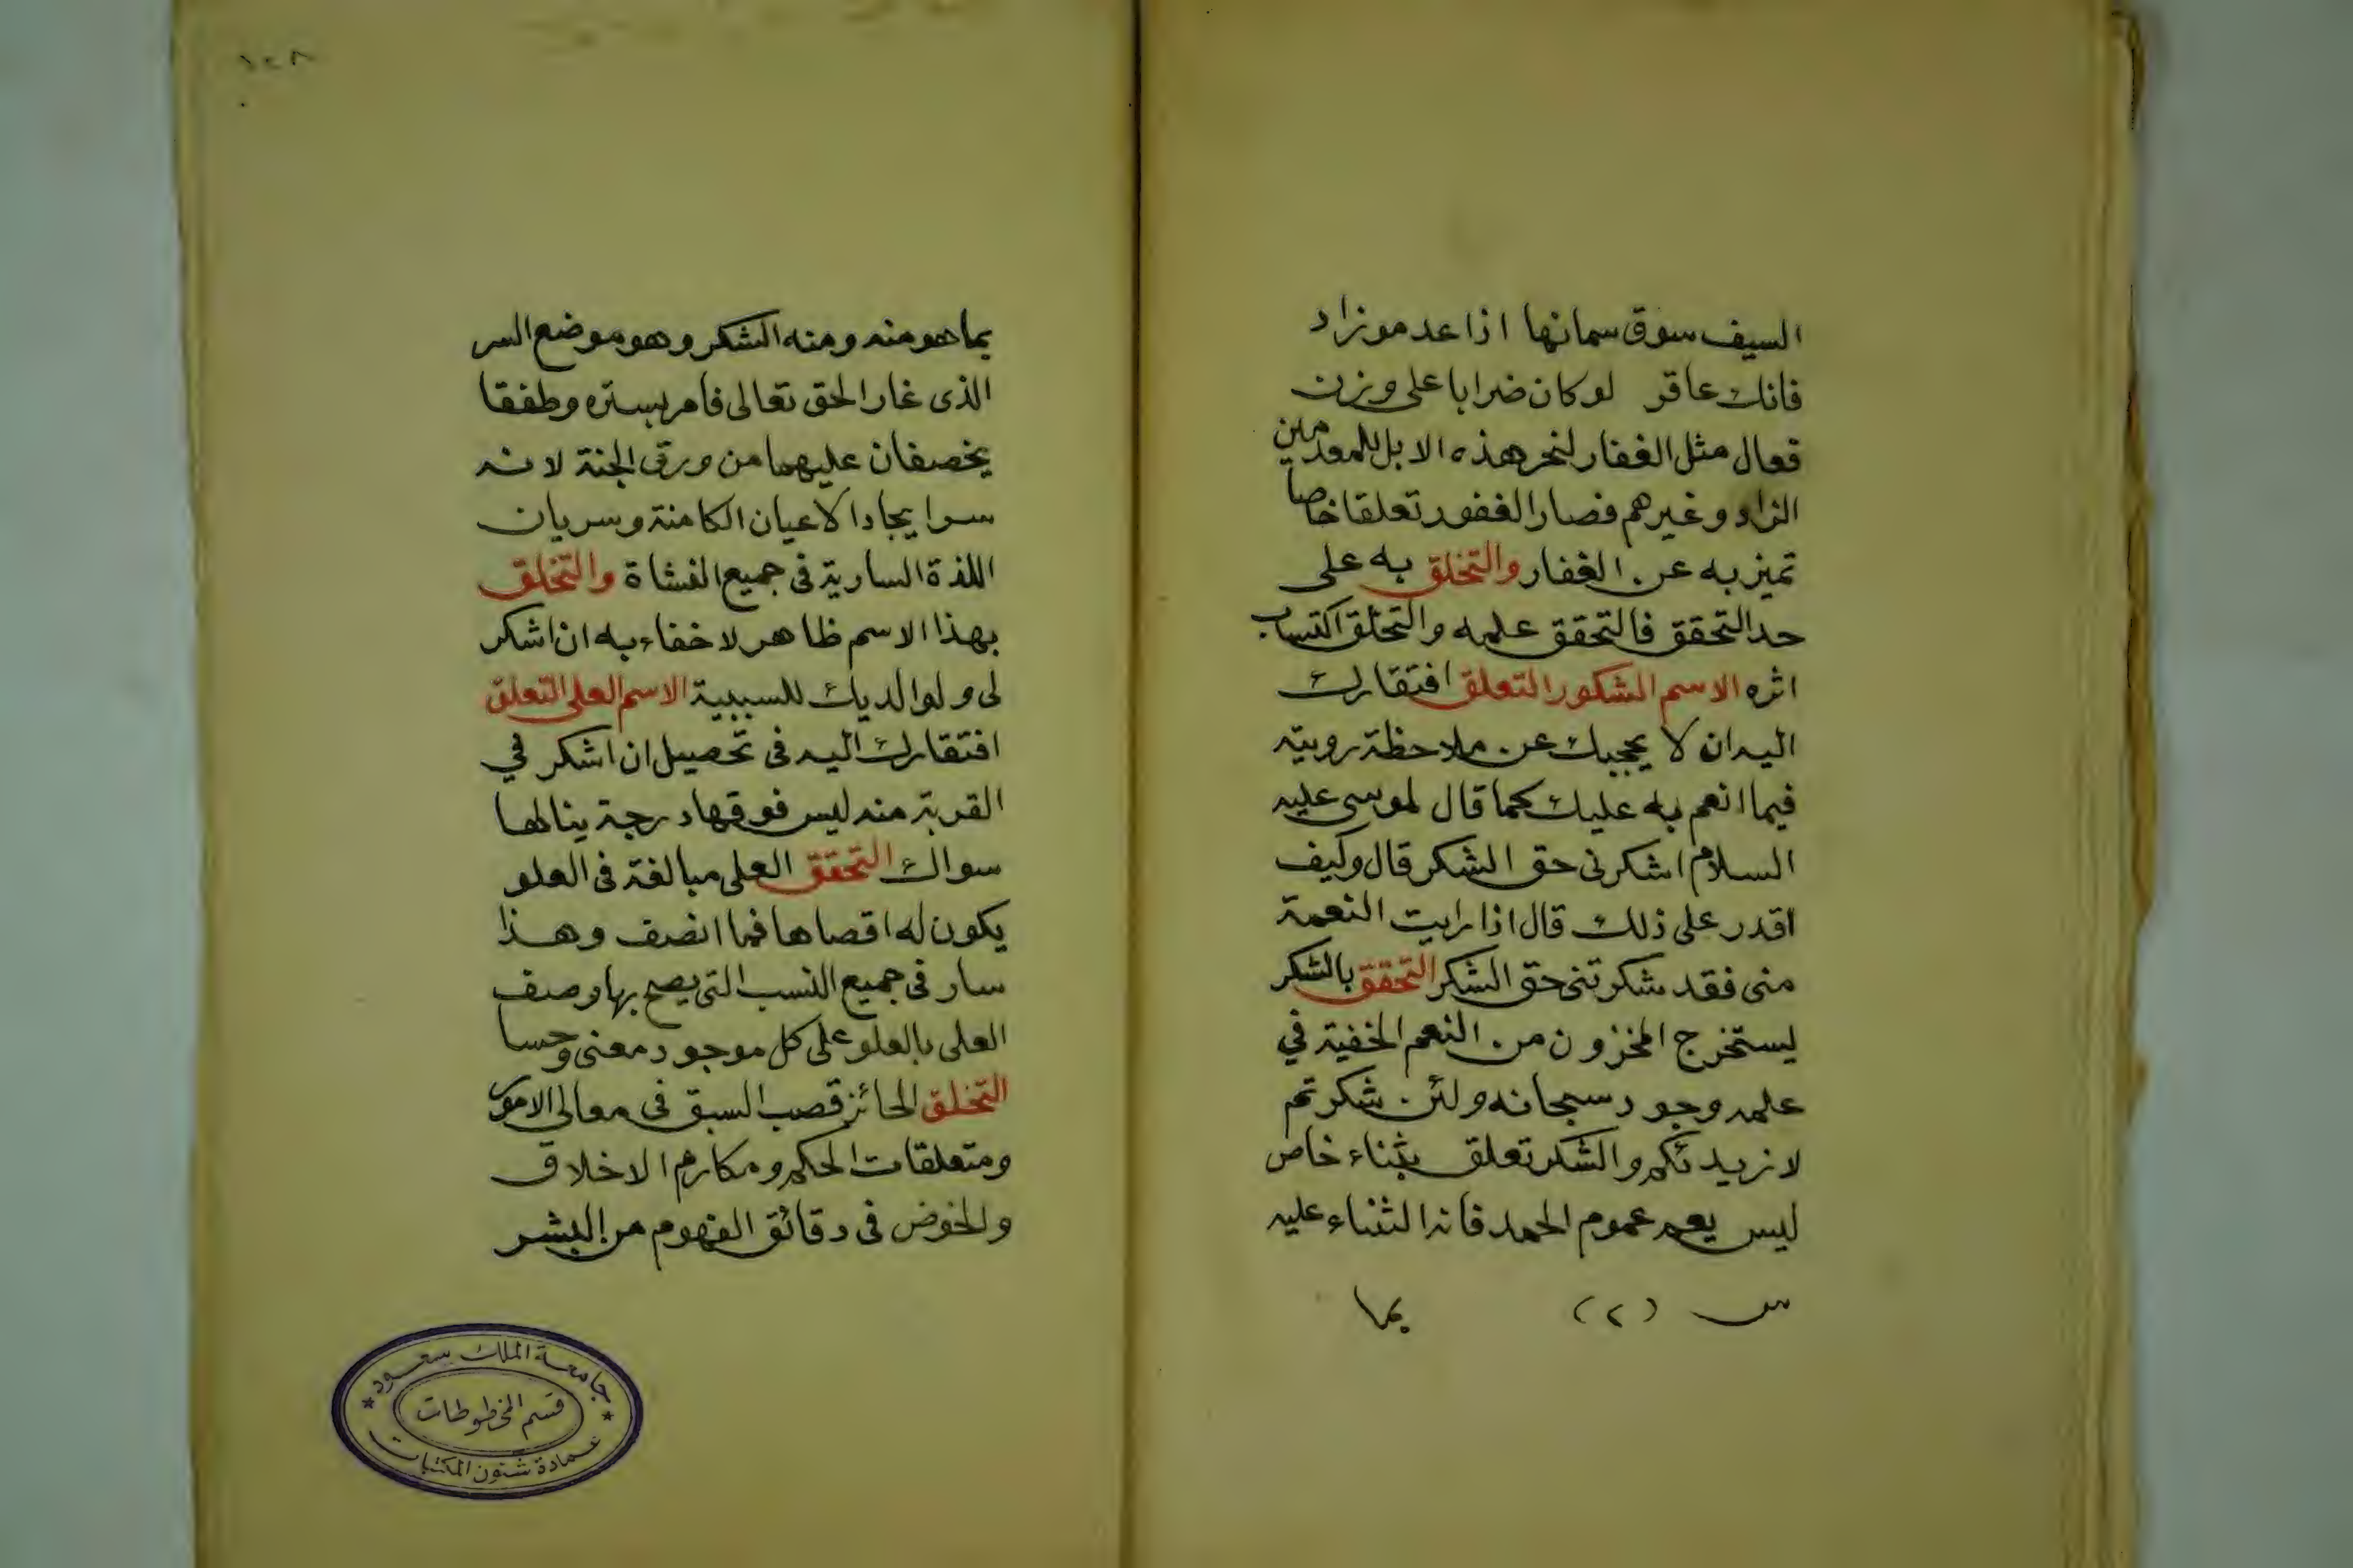 السيف سوق سمانها اذا عدموزاد
فانك عاقر لو كان ضرابا على وزن
فعال مثل الغفار لنحر هذه الابل للمعدمين
الزاد وغيرهم فصار الغفور تعلقا خاصا
تميز به عن الغفار والتخلق به على
حد التحقق فالتحقق علمه والتخلق اكتساب
اثره الاسم الشكور التعلق افتقارك
اليه ان لا يحجبك عن ملاحظة رويته
فيما انعم به عليك كما قال لموسى عليه
السلام اشكرنى حق الشكر قال وكيف
اقدر على ذلك قال اذا رايت النعمة
منى فقد شكرتنى حق الشكر التحقق بالشكر
ليستخرج المخزون من النعم الخفية في
علمه وجود سبحانه ولئن شكرتم
لازيدنكم والشكر تعلق بثناء خاص
ليس يعم عموم الحمد فانه الثناء عليه
س (٢) بما
١٢٨
بما هو منه ومنه الشكر وهو موضع السر
الذى غار الحق تعالى فامر بستره وطفقا
يخصفان عليهما من ورق الجنة لانه
سر ايجاد الاعيان الكامنة وسريان
اللذة السارية فى جميع النشاة والتخلق
بهذا الاسم ظاهر لا خفاء به ان اشكر
لى ولوالديك للسببية الاسم العلى التعلق
افتقارك اليه فى تحصيل ان اشكر في
القربة منه ليس فوقها درجة ينالها
سواك التحقق العلى مبالغة فى العلو
يكون له اقصاها فما انصف وهذا
سار فى جميع النسب التى يصح بها وصف
العلى بالعلو على كل موجود معنى وحسا
التخلق الحائز قصب السبق فى معالى الامور
ومتعلقات الحكم ومكارم الاخلاق
والخوض فى دقائق الفهوم من البشر
جامعة الملك سعود
قسم المخطوطات
عمادة شئون المكتبات